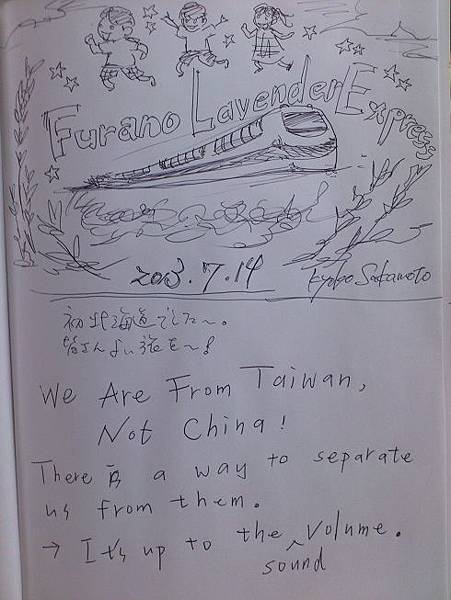 Furano Lavender Express
2013.7.14
Kyoko Sakamoto
初北海道でした〜。
皆さんよい旅を〜!
We Are From Taiwan,
Not China!
There is a way to separate
us from them.
→ It's up to the sound volume.